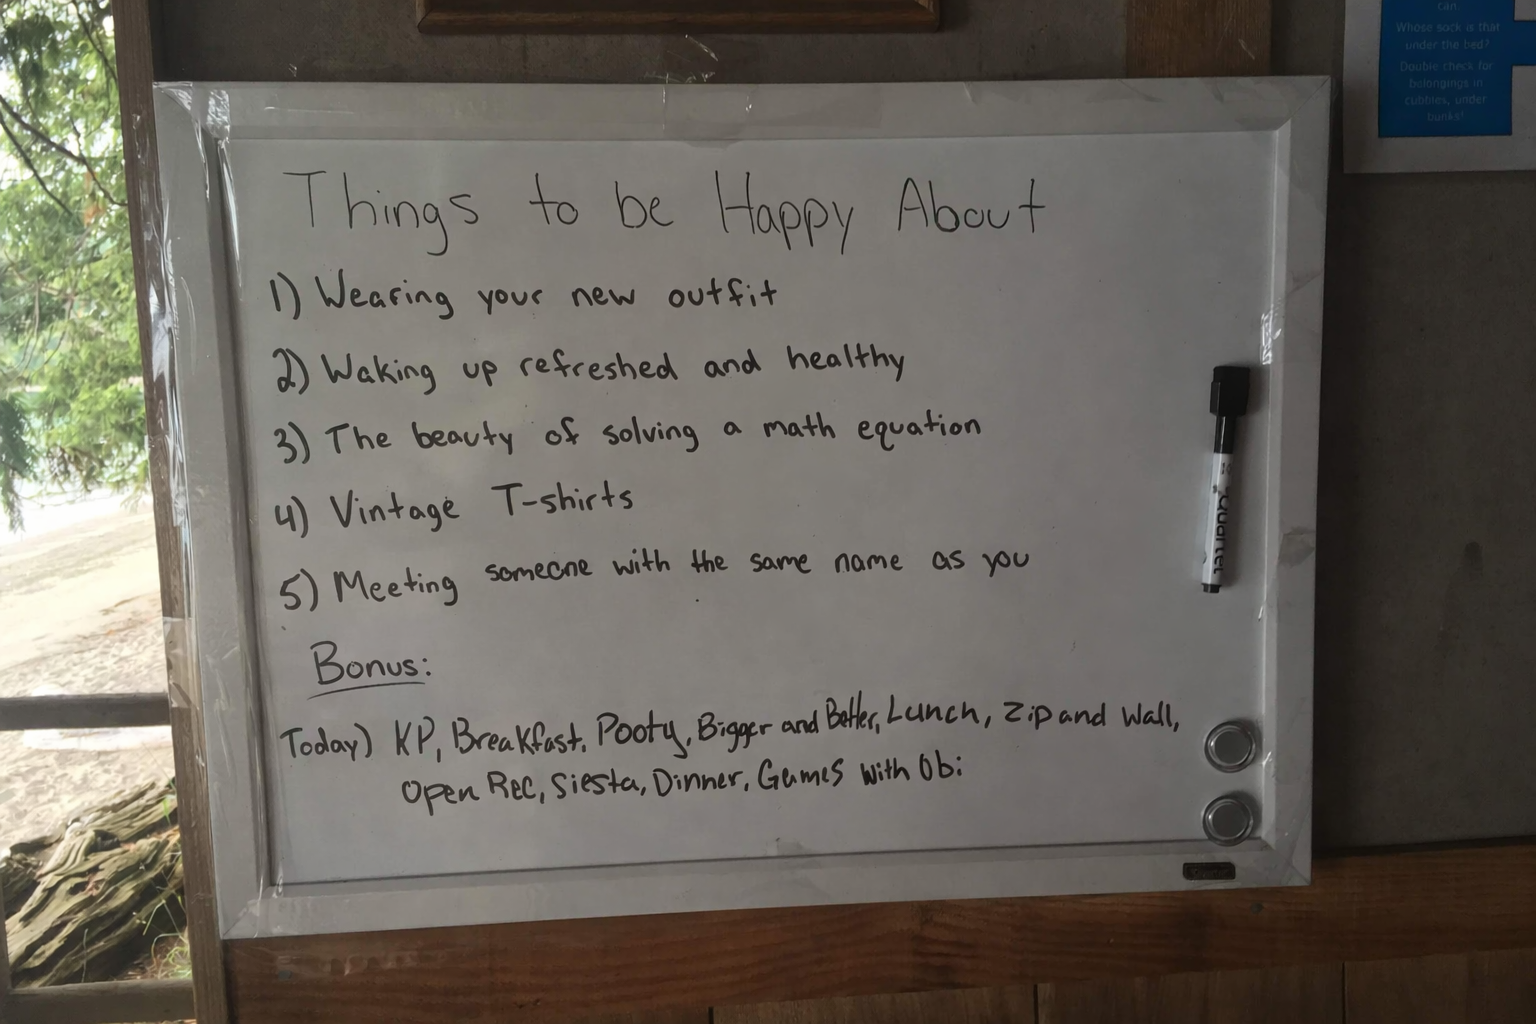 can.
Whose sock is that
under the bed?
Double check for
belongings in
cubbies, under
bunks!
Things to be Happy About
1) Wearing your new outfit
2) Waking up refreshed and healthy
3) The beauty of solving a math equation
4) Vintage T-shirts
5) Meeting someone with the same name as you
Bonus:
Today) KP, Breakfast, Pooty, Bigger and Better, Lunch, Zip and Wall,
Open Rec, Siesta, Dinner, Games with Obi
Quartet